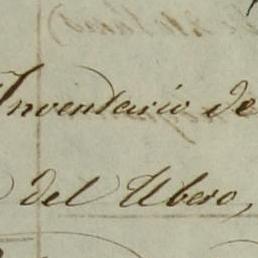 Inventario de
del Ubero,